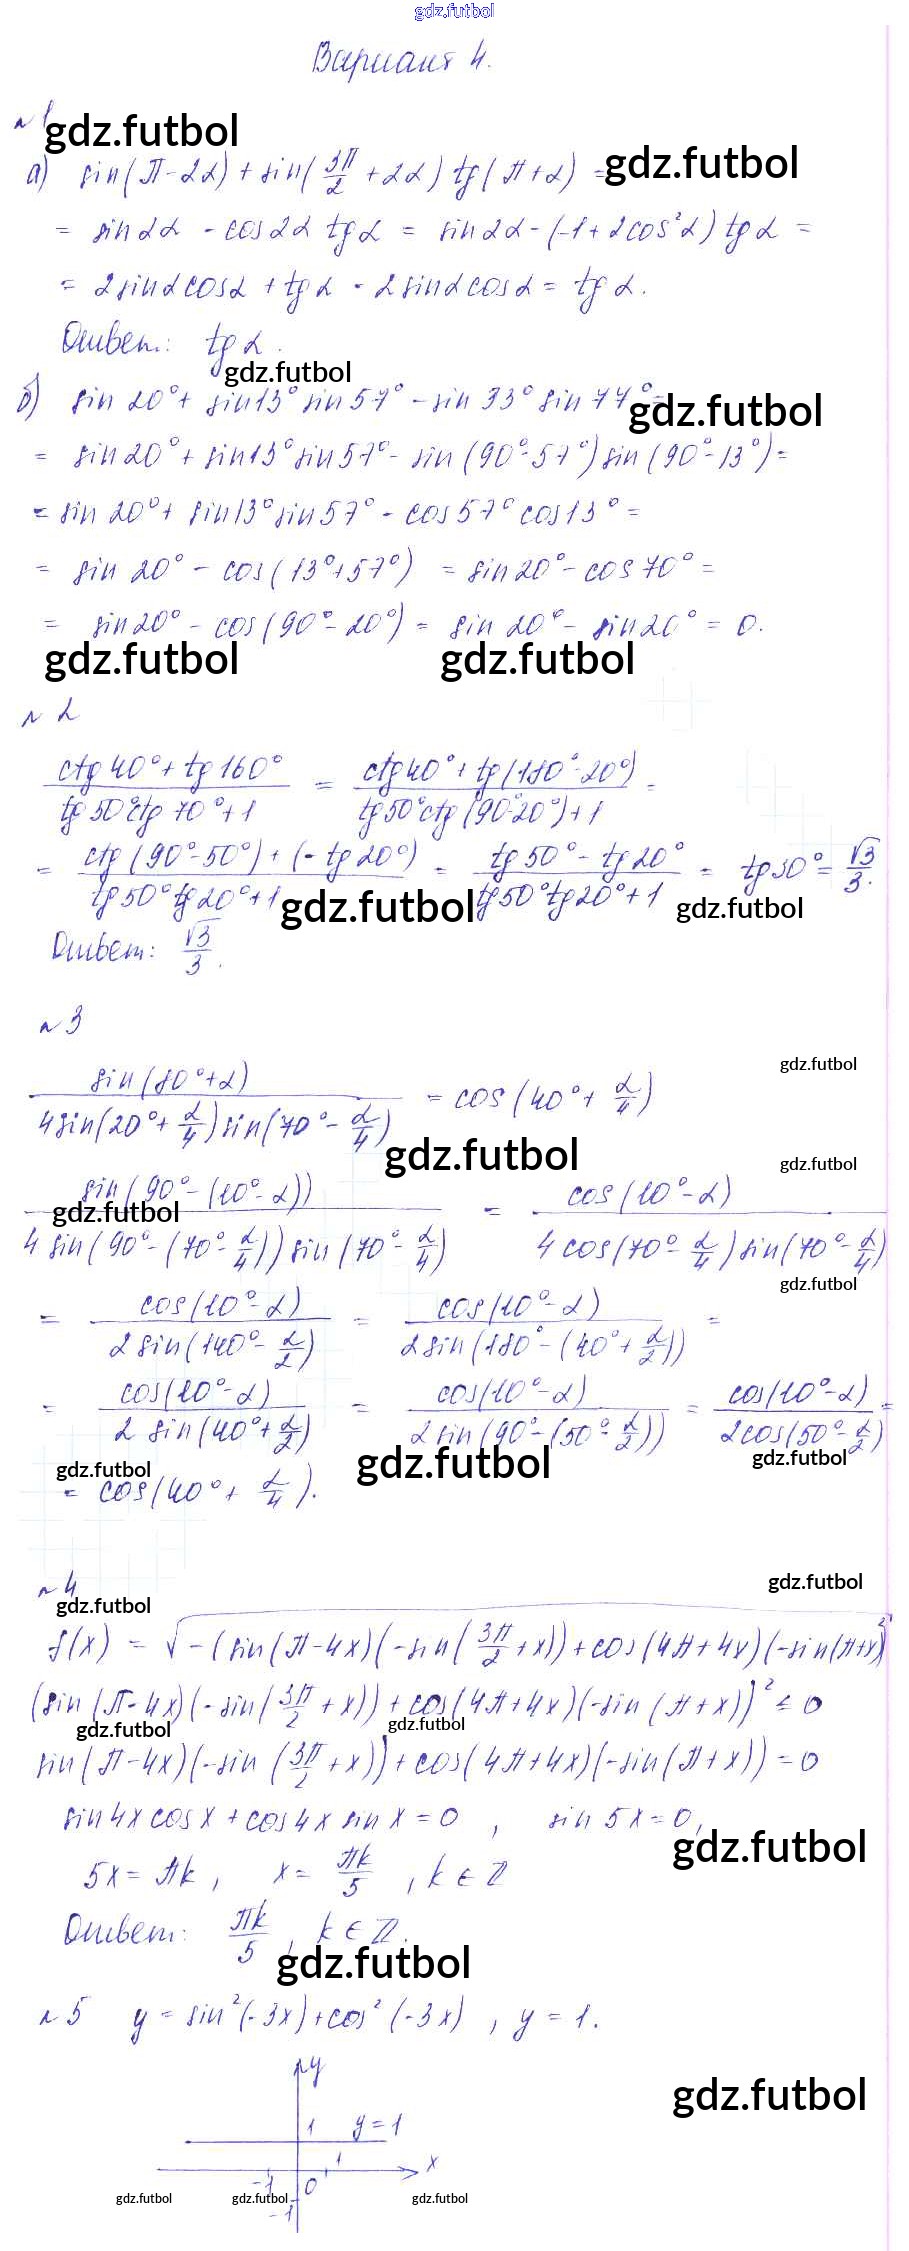 gdz.futbol
Вариант 4.
№ 1
gdz.futbol
а) sin(π-2α) + sin(3π/2 + 2α) tg(π+α) =
gdz.futbol
= sin2α - cos2α tgα = sin2α - (-1 + 2cos²α) tgα =
= 2sinαcosα + tgα - 2sinαcosα = tgα.
Ответ: tgα.
gdz.futbol
б) sin 20° + sin13° sin57° - sin 33° sin 77° =
gdz.futbol
= sin20° + sin13° sin57° - sin(90°-57°) sin(90°-13°) =
= sin 20° + sin13° sin57° - cos57° cos13° =
= sin 20° - cos(13°+57°) = sin20° - cos70° =
= sin20° - cos(90°-20°) = sin 20° - sin20° = 0.
gdz.futbol gdz.futbol
№ 2
(ctg40° + tg160°)/(tg50°ctg70° + 1) = (ctg40° + tg(180°-20°))/(tg50°ctg(90°-20°) + 1) =
= (ctg(90°-50°) + (-tg20°))/(tg50°tg20° + 1) = (tg50° - tg20°)/(tg50°tg20° + 1) = tg30° = √3/3.
gdz.futbol gdz.futbol
Ответ: √3/3.
№ 3
gdz.futbol
sin(80°+α)/(4sin(20°+α/4)sin(70°-α/4)) = cos(40°+α/4)
gdz.futbol gdz.futbol
sin(90°-(10°-α))/(4sin(90°-(70°-α/4))sin(70°-α/4)) = cos(10°-α)/(4cos(70°-α/4)sin(70°-α/4))
gdz.futbol gdz.futbol
= cos(10°-α)/(2sin(140°-α/2)) = cos(10°-α)/(2sin(180°-(40°+α/2))) =
= cos(10°-α)/(2sin(40°+α/2)) = cos(10°-α)/(2sin(90°-(50°-α/2))) = cos(10°-α)/(2cos(50°-α/2)) =
gdz.futbol gdz.futbol gdz.futbol
= cos(40°+α/4).
№ 4
gdz.futbol
gdz.futbol
f(x) = √-(sin(π-4x)(-sin(3π/2+x)) + cos(4π+4x)(-sin(π+x))²
(sin(π-4x)(-sin(3π/2+x)) + cos(4π+4x)(-sin(π+x))² ≤ 0
gdz.futbol gdz.futbol
sin(π-4x)(-sin(3π/2+x)) + cos(4π+4x)(-sin(π+x)) = 0
sin4x cosx + cos4x sinx = 0, sin 5x = 0,
gdz.futbol
5x = πk, x = πk/5, k ∈ ℤ
Ответ: πk/5, k ∈ ℤ.
gdz.futbol
№ 5 y = sin²(-3x) + cos²(-3x), y = 1.
y
gdz.futbol
1 y = 1
1 x
-1 0
gdz.futbol gdz.futbol gdz.futbol
-1